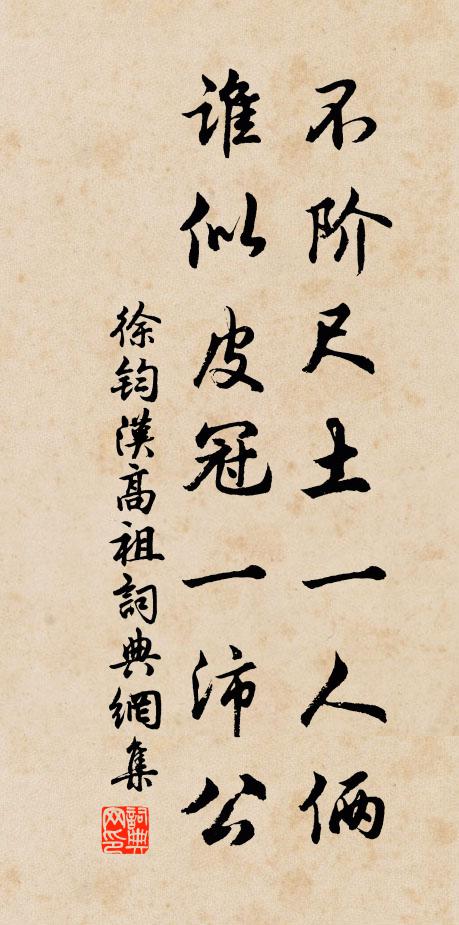 不阶尺土一人俩
谁似皮冠一沛公
徐钧漢高祖詞典網集
詞典
网印